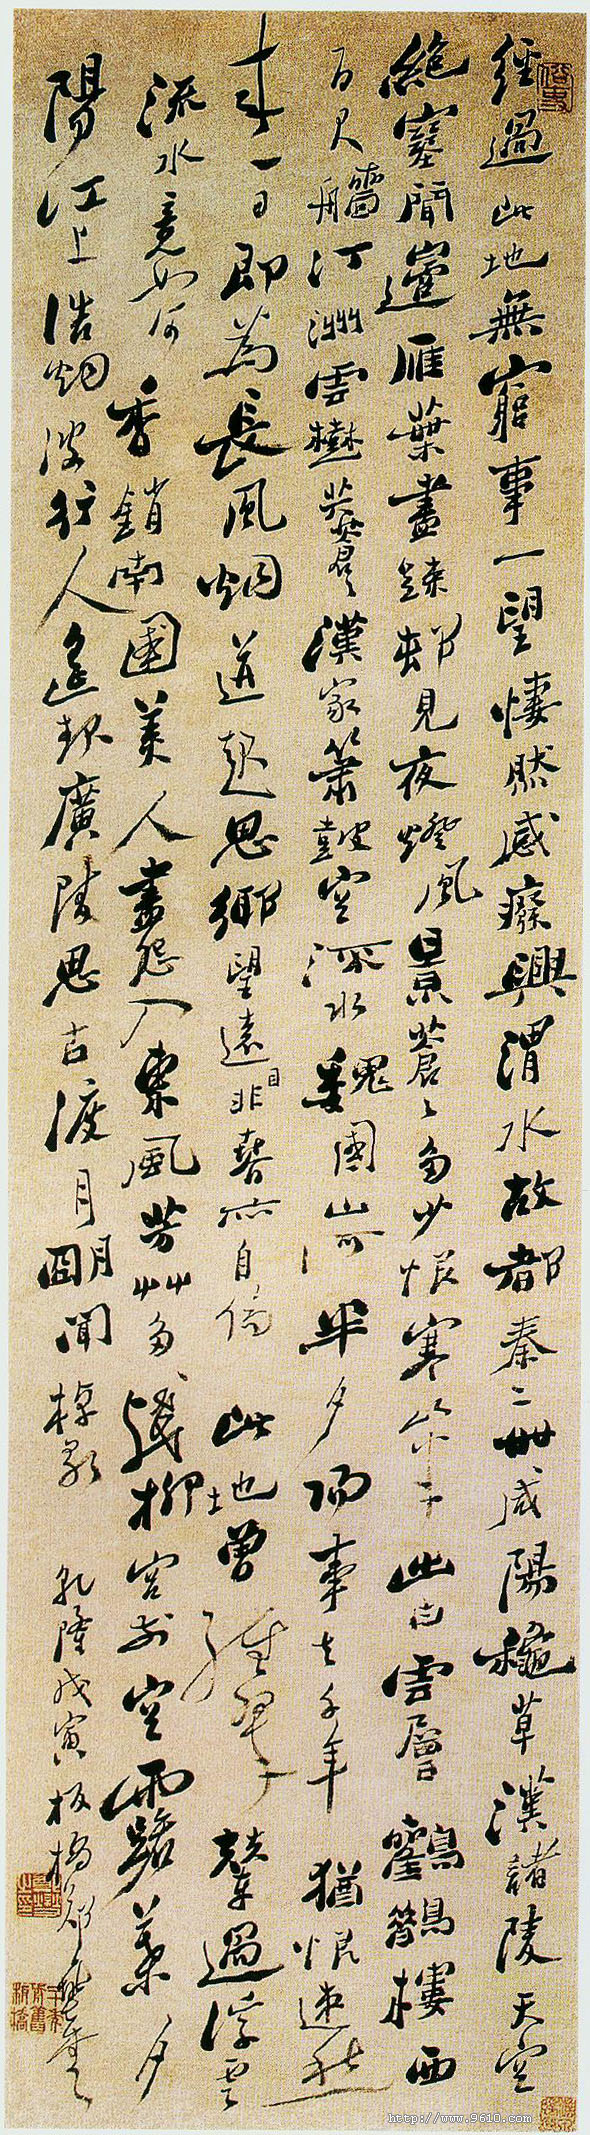 經過此地無窮事一望悽然感癈興渭水故都秦二世咸陽穐草漢諸陵天空
絶塞聞邊雁葉盡疎邨見夜燈風景蒼〻多少恨寒山半出白雲層鸛鵲樓西
百尺艢汀洲雲樹共蒼〻漢家簫鼓空流水魏國山河半夕陽事去千年猶恨速愁
來一日即為長風烟並起思鄉望遠目非春亦自傷此地曾經翠輦過浮雲
流水竟如何香銷南國美人盡怨入東風芳艸多殘柳宮前空露葉夕
陽江上浩烟波行人遙起廣陵思古渡月明聞棹歌 乾隆戊寅板橋鄭燮書
http://www.9610.com